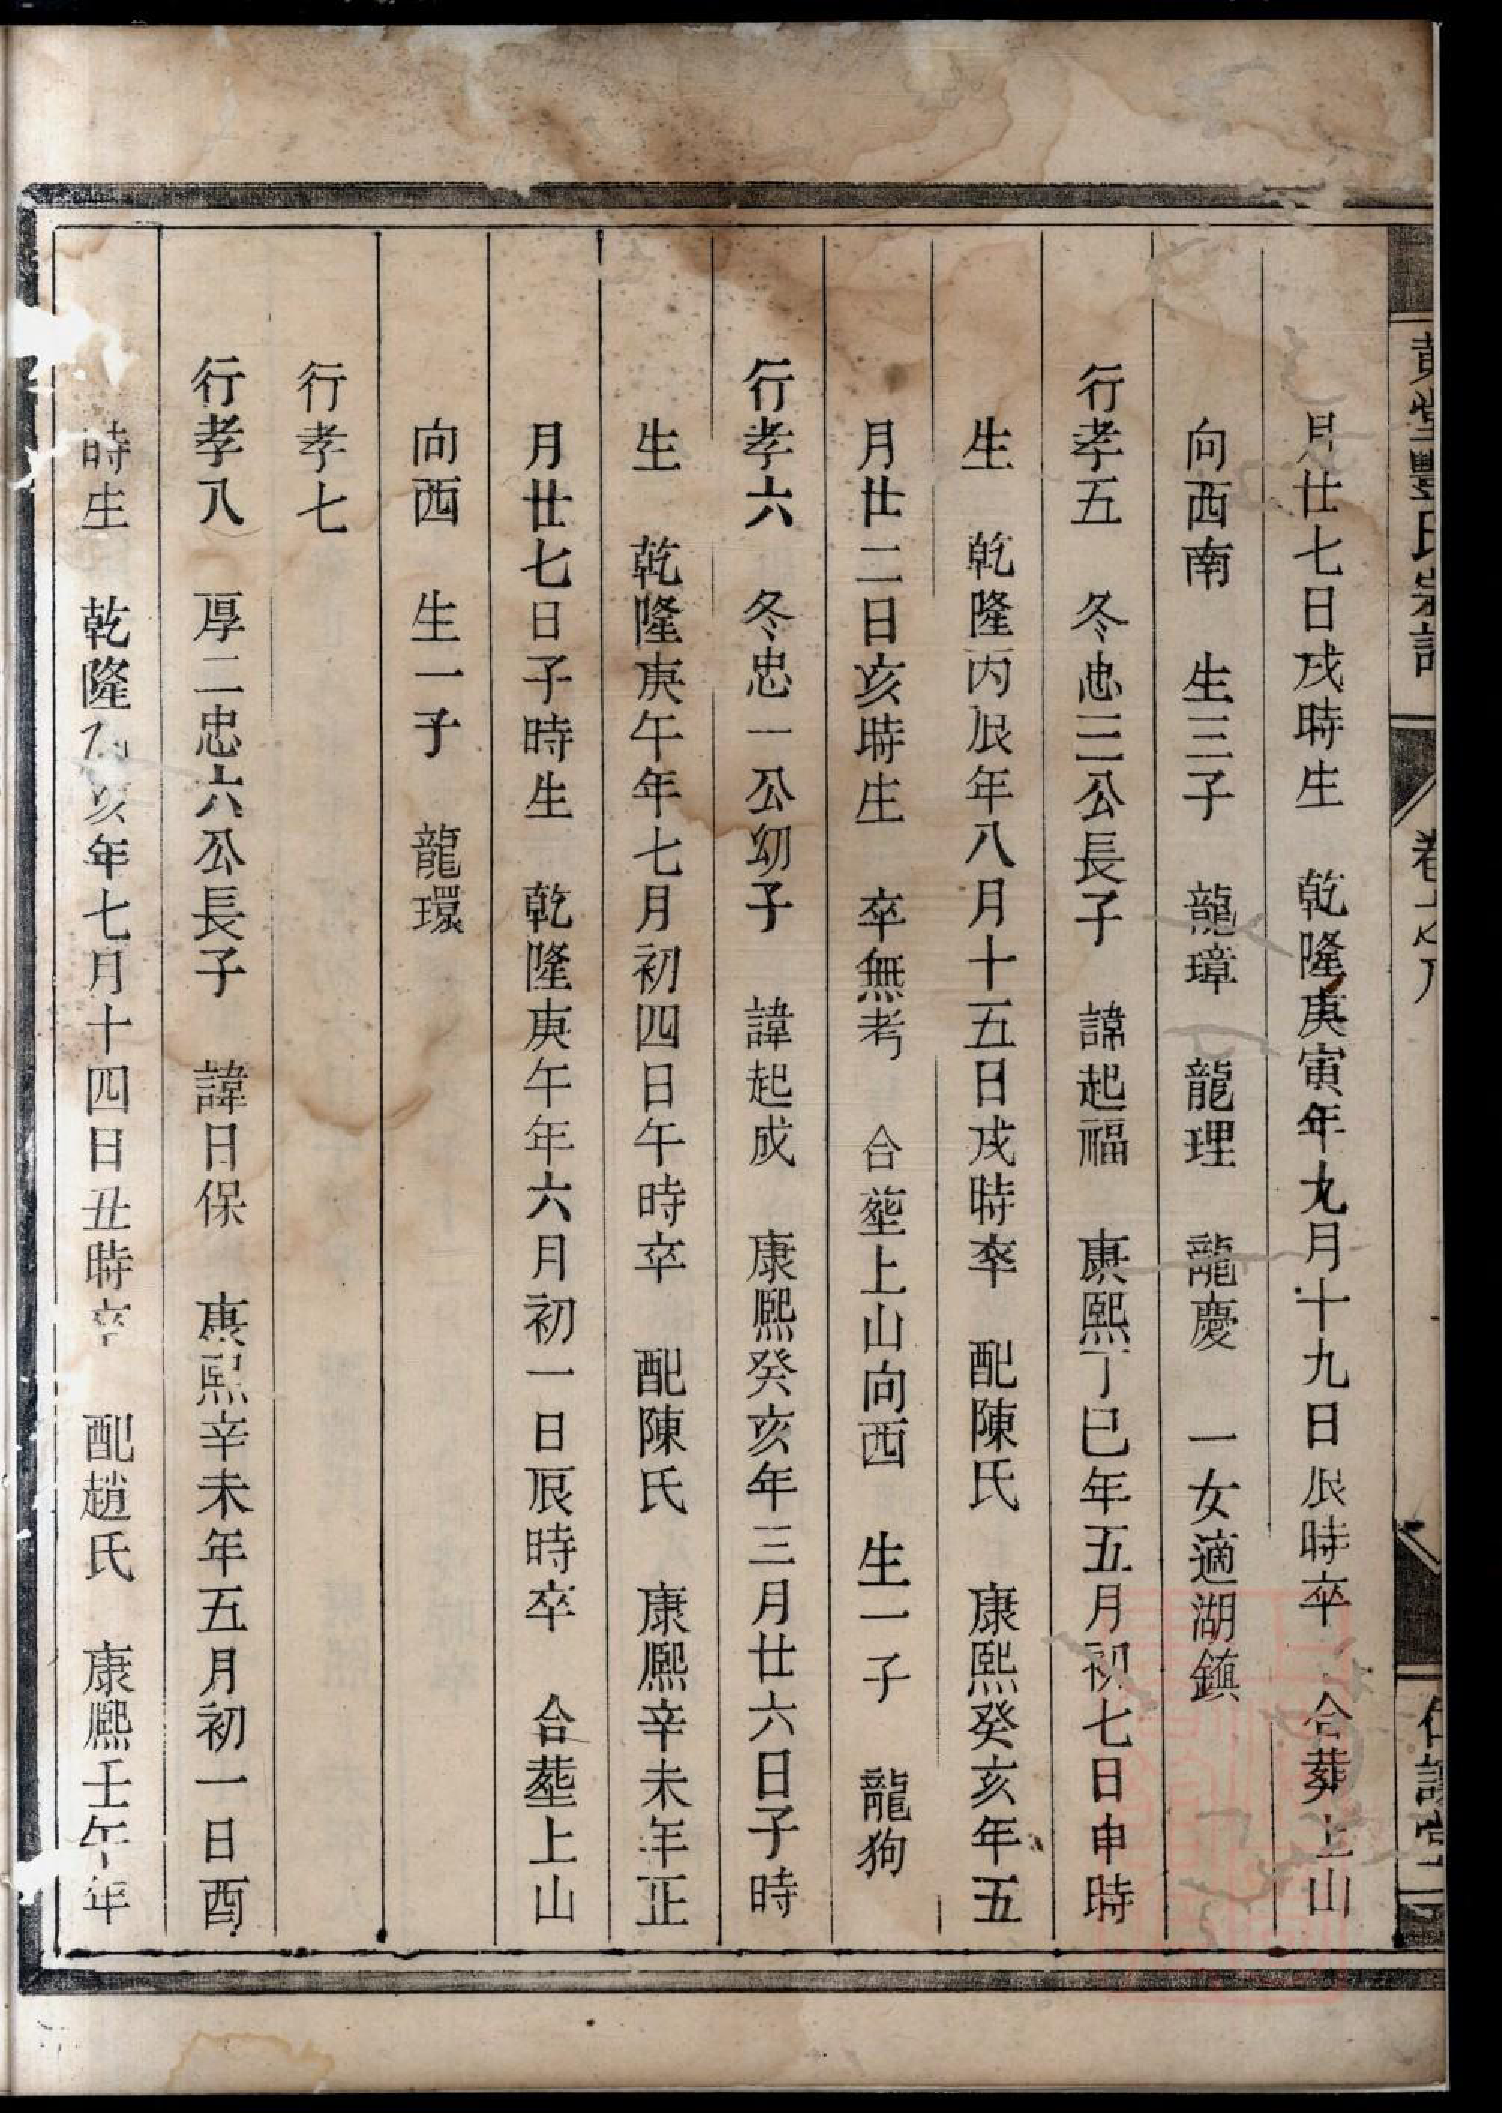 黃堂豐氏宗譜 卷之八
月廿七日戌時生 乾隆庚寅年九月十九日辰時卒 合葬上山
向西南 生三子 龍璋 龍理 龍慶 一女適湖鎮
行孝五 冬忠三公長子 諱起福 康熙丁巳年五月初七日申時
生 乾隆丙辰年八月十五日戌時卒 配陳氏 康熙癸亥年五
月廿二日亥時生 卒無考 合塟上山向西 生一子 龍狗
行孝六 冬忠一公幼子 諱起成 康熙癸亥年三月廿六日子時
生 乾隆庚午年七月初四日午時卒 配陳氏 康熙辛未年正
月廿七日子時生 乾隆庚午年六月初一日辰時卒 合塟上山
向西 生一子 龍環
行孝七
行孝八 厚二忠六公長子 諱日保 康熙辛未年五月初一日酉
時生 乾隆乙亥年七月十四日丑時卒 配趙氏 康熙壬午年